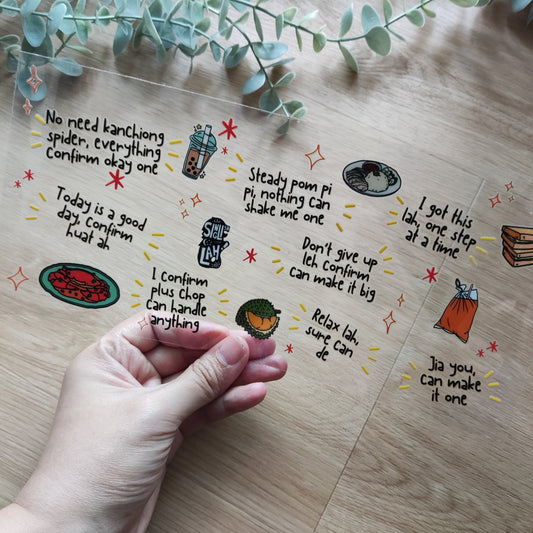 No need kanchiong
spider, everything
Confirm okay one
Steady pom pi
pi, nothing can
shake me one
I got this
lah, one step
at a time
Today is a good
day, Confirm
huat ah
Don't give up
leh Confirm
Can make it big
I Confirm
plus Chop
Can handle
anything
Relax lah,
sure Can
de
Jia you,
Can make
it one